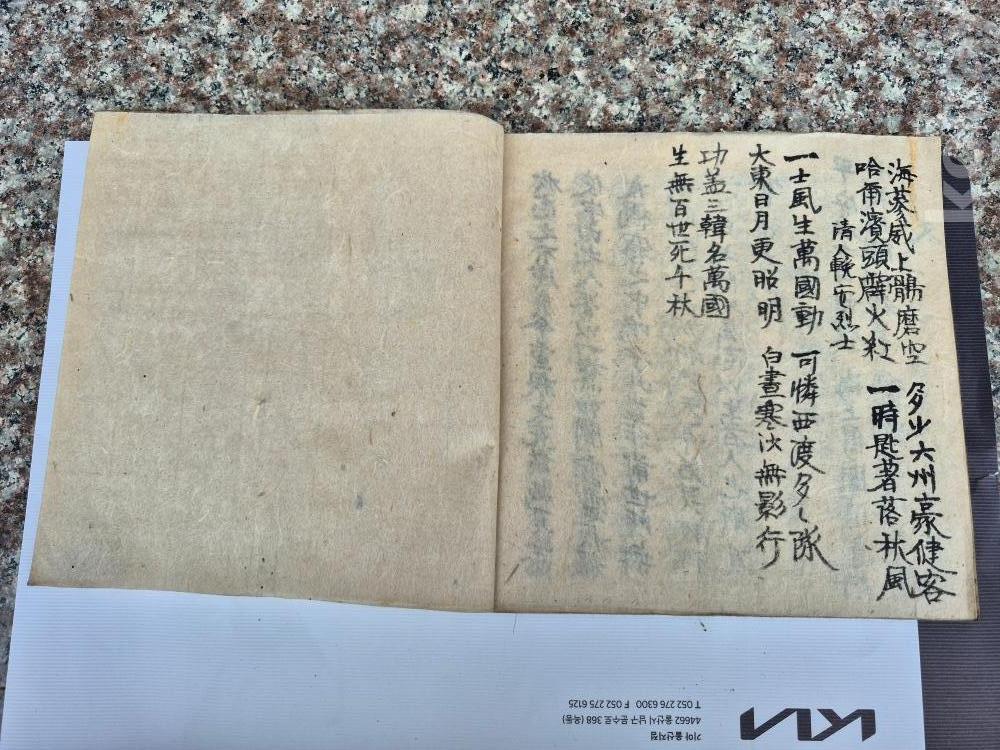 海蔘威上鶻磨空 多少六州豪健客
哈爾濱頭霹火紅 一時匙著落秋風
清人輓安烈士
一士風生萬國動 可憐西渡多々隊
大東日月更昭明 白晝寒沙無影行
功盖三韓名萬國
生無百世死千秋
KIA
기아 울산지점
44662 울산시 남구 문수로 368 (옥동)
T 052 276 6300 F 052 275 6125